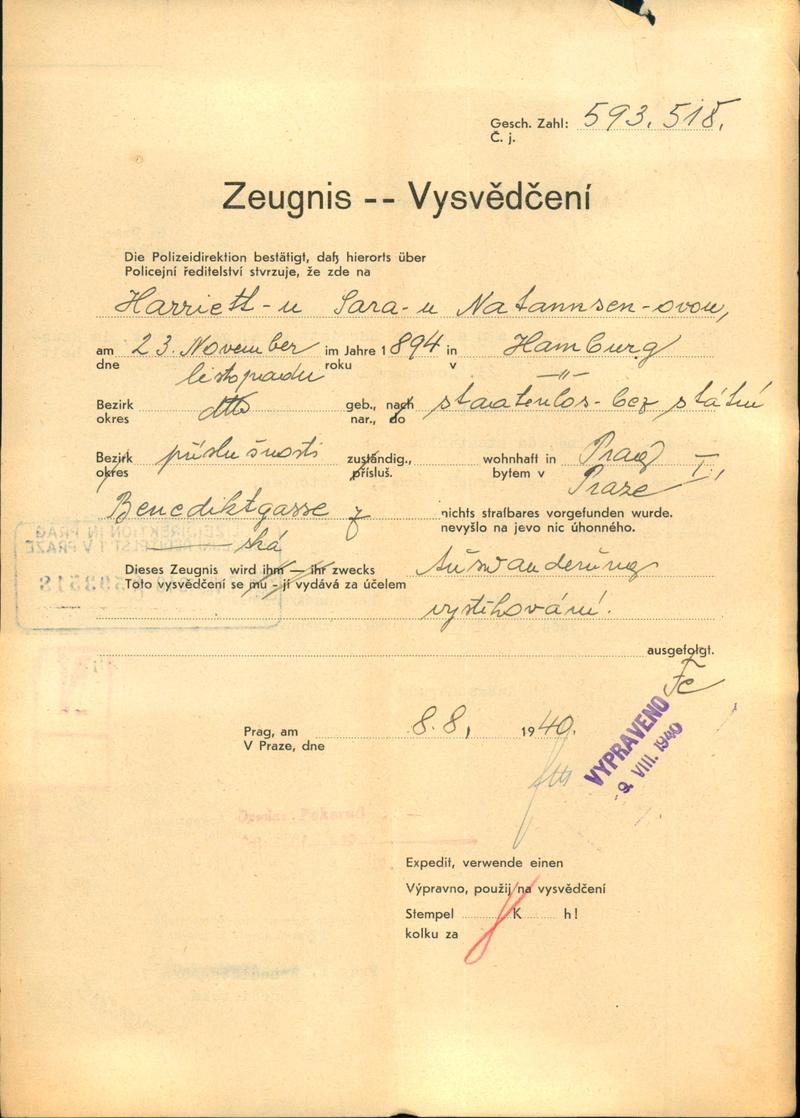 Gesch. Zahl: 593.518.
Č. j.
Zeugnis -- Vysvědčení
Die Polizeidirektion bestätigt, daß hierorts über
Policejní ředitelství stvrzuje, že zde na
Harriett-u Sara-u Natannsen-ovou,
am 23. November im Jahre 1894 in Hamburg
dne listopadu roku v -"-
Bezirk dtto geb., nach staatenlos - bez státní
okres nar., do
Bezirk příslušnosti zuständig., wohnhaft in Prag I.,
okres přísluš. bytem v Praze
Benediktgasse z nichts strafbares vorgefunden wurde.
ská nevyšlo na jevo nic úhonného.
Dieses Zeugnis wird ihm — ihr zwecks Auswanderung
Toto vysvědčení se mu - jí vydává za účelem
vystěhování.
ausgefolgt.
Prag, am 8.8. 1940.
V Praze, dne
VYPRAVENO
9. VIII. 1940
Expedit, verwende einen
Výpravno, použij na vysvědčení
Stempel K h!
kolku za